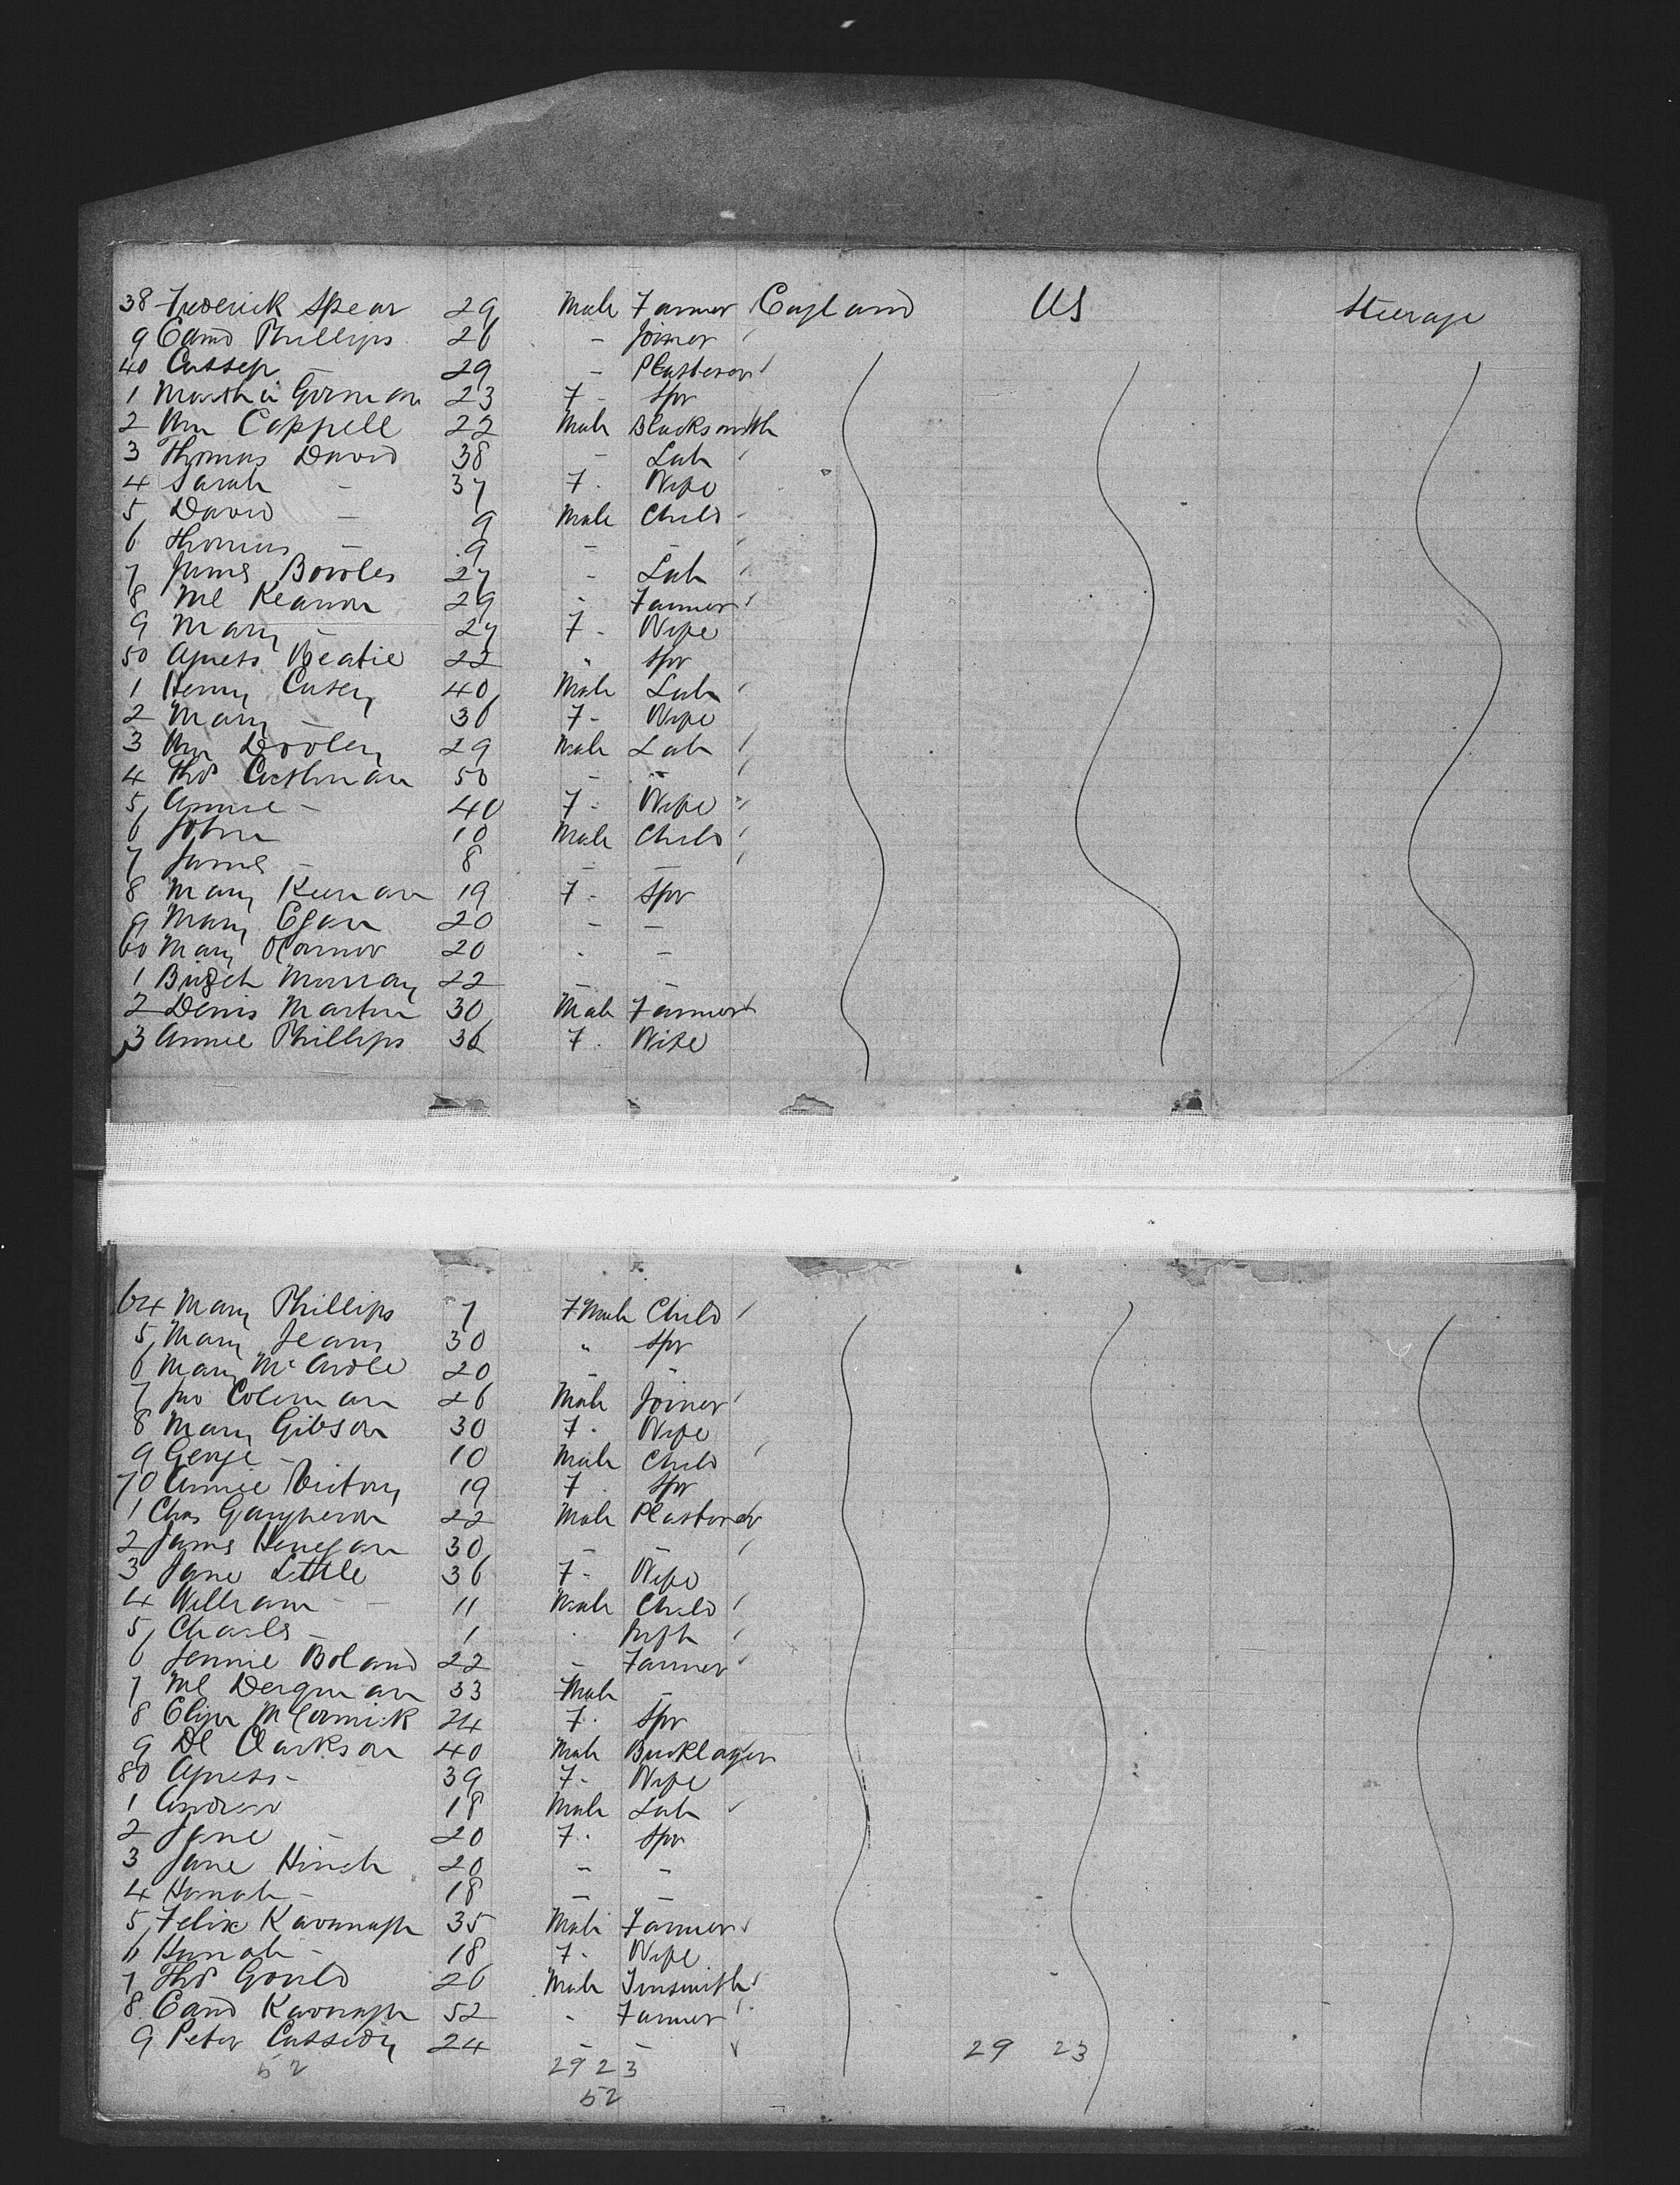 38 Frederick Spear 29 Male Farmer England US Steerage
9 Edmd Phillips 26 - Joiner
40 Cassep - 29 - Plasterer
1 Martha Gorman 23 F - Spr
2 Wm Cappell 22 Male Blacksmith
3 Thomas David 38 - Lab
4 Sarah - 37 F. Wife
5 David - 9 Male Child
6 Thomas - 9 - -
7 James Bowles 27 - Lab
8 Ml Keanon 29 - Farmer
9 Mary - 27 F - Wife
50 Agness Beatie 22 " Spr
1 Henry Casey 40 Male Lab
2 Mary - 36 F - Wife
3 Wm Dooley 29 Male Lab
4 Thos Cashman 50 - -
5 Annie - 40 F - Wife
6 John 10 Male Child
7 James - 8 - -
8 Mary Keenan 19 F - Spr
9 Mary Egan 20 - -
60 Mary OConnor 20 - -
1 Bridget Murray 22 - -
2 Denis Martin 30 Male Farmer
3 Annie Phillips 36 F. Wife
64 Mary Phillips 7 FMale Child
5 Mary Jeans 30 " Spr
6 Mary McArdle 20 - -
7 Jno Coleman 26 Male Joiner
8 Mary Gibson 30 F. Wife
9 George - 10 Male Child
70 Annie Victory 19 F. Spr
1 Chas 22 Male Plasterer
2 James Henegan 30 - -
3 Jane Little 36 F - Wife
4 William - 11 Male Child
5 Charles - 1 Inft
6 Jennie Boland 22 - Farmer
7 Ml Dergman 33 Male -
8 Eliza McCormick 24 F. Spr
9 Dl Clarkson 40 Male Bricklayer
80 Agness - 39 F - Wife
1 Andrew 18 Male Lab
2 Jane - 20 F. Spr
3 Jane Hinch 20 - -
4 Hanah - 18 - -
5 Felix Kavanagh 35 Male Farmer
6 Hannah - 18 F - Wife
7 Thos Gould 26 Male Tinsmith
8 Edmd Kavanagh 52 - Farmer
9 Peter Cassidy 24 - -
29 23
52 29 23
52